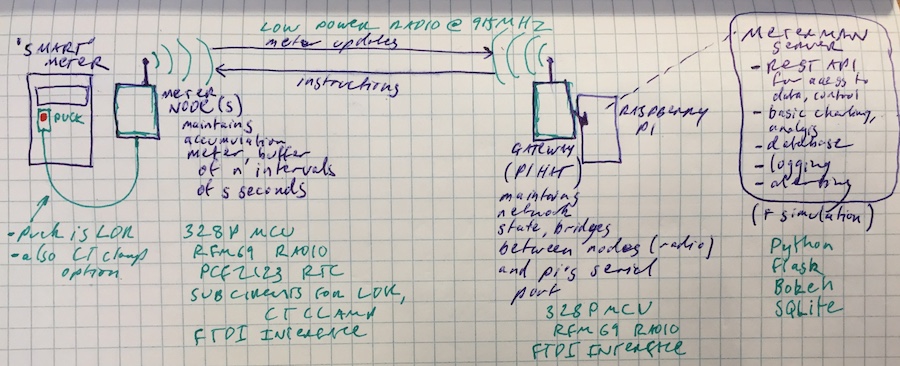 LOW POWER RADIO @ 915MHZ
meter updates
instructions
"SMART"
METER
PUCK
METER
NODE(S)
maintains
accumulation
meter, buffer
of n intervals
of s seconds
- PUCK is LDR
- also CT clamp
option
328P MCU
RFM69 RADIO
PCF2123 RTC
SUBCIRCUITS FOR LDR,
CT CLAMP
FTDI INTERFACE
RASPBERRY
PI
GATEWAY
(PI HAT)
maintains
network
state, bridges
between nodes (radio)
and pi's serial
port
328P MCU
RFM69 RADIO
FTDI INTERFACE
METERMAN
SERVER
- REST API
for access to
data, control
- basic charting,
analysis
- database
- logging
- alerting
(+ simulation)
Python
Flask
Bokeh
SQLite